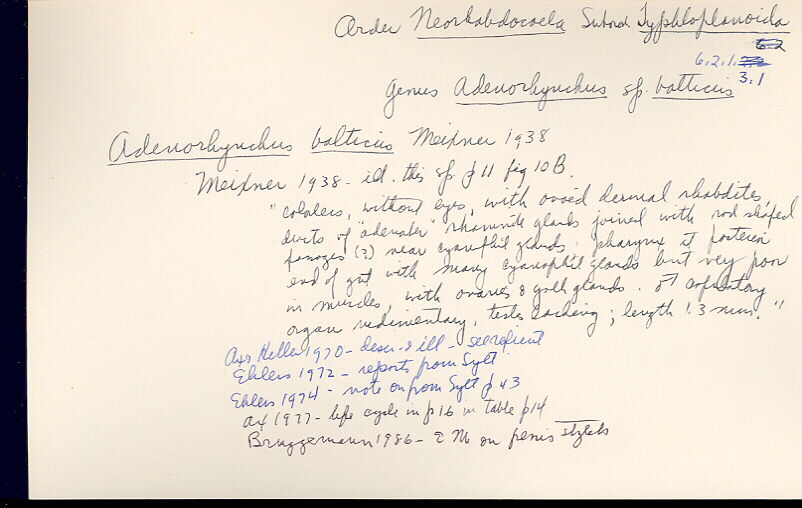 Order Neorhabdocoela Subord Typhloplanoida
6.2
6.2.1.
3.1
Genus Adenorhynchus sp. balticus
Adenorhynchus balticus Meixner 1938
Meixner 1938 - ill. this sp. p 11 fig 10B.
"colorless, without eyes, with ovoid dermal rhabdites,
ducts of "adenaler" rhammite glands joined with rod shaped
passages (?) near cyanophil glands. pharynx at posterior
end of gut with many cyanophil glands but very poor
in muscles, with ovaries & yolk glands. ♂ copulatory
organ rudimentary, testes lacking; length 1.3 mm."
Ax & Heller 1970 - descr. & ill - see reprint
Ehlers 1972 - reports from Sylt
Ehlers 1974 - note on from Sylt p 43
Ax 1977 - life cycle in p 16 in table p 14
Bruggemann 1986 - EM on penis stylets